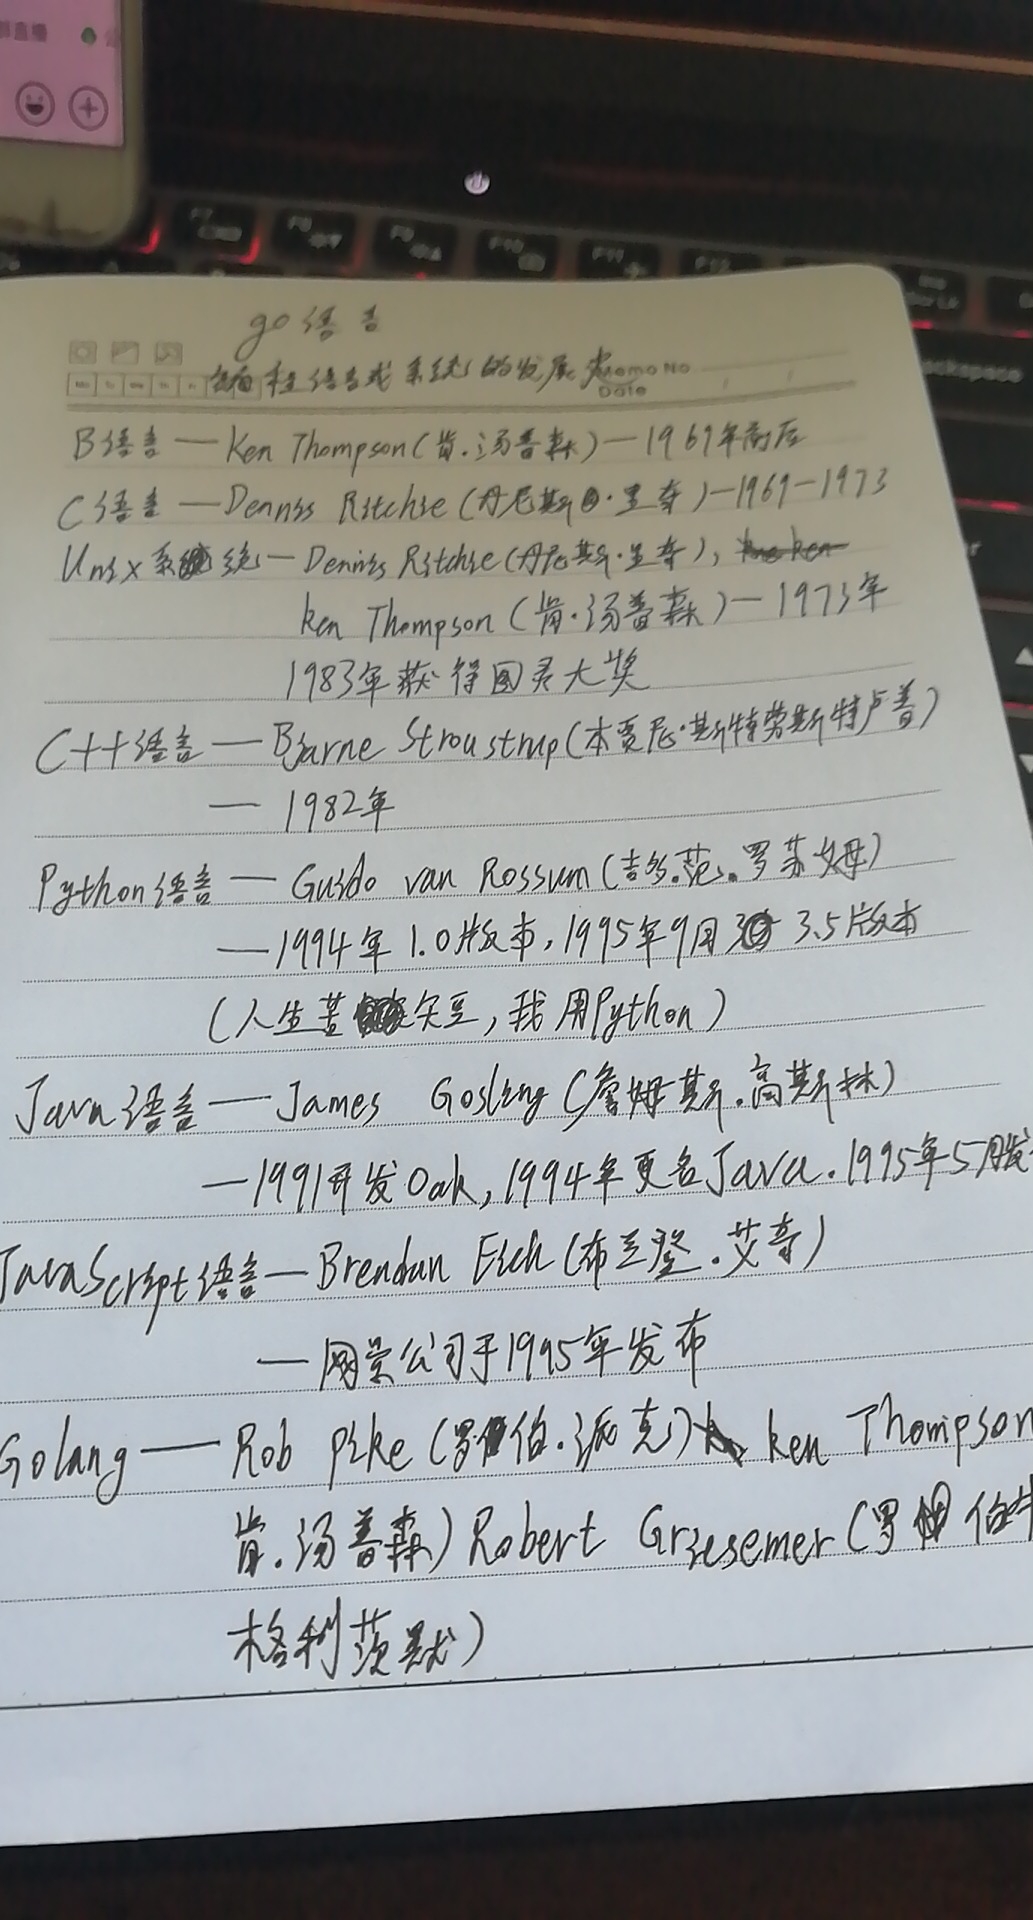 群直播
F7
F8
F9
F10
F11
F12
go语言
编程语言或系统的发展史
Memo No
Date
B语言—Ken Thompson(肯.汤普森)—1969年前后
C语言—Dennis Ritchie(丹尼斯·里奇)—1969-1973
Unix系统—Dennis Ritchie(丹尼斯·里奇),
ken Thompson(肯·汤普森)—1973年
1983年获得图灵大奖
C++语言—Bjarne Stroustrup(本贾尼·斯特劳斯特卢普)
—1982年
Python语言—Guido van Rossum(吉多.范.罗苏姆)
—1994年1.0版本,1995年9月 3.5版本
(人生苦短,我用Python)
Java语言—James Gosling(詹姆斯.高斯林)
—1991开发Oak,1994年更名Java.1995年5月发
JavaScript语言—Brendan Eich(布兰登.艾奇)
—网景公司于1995年发布
Golang—Rob pike(罗伯.派克) ken Thompson
肯.汤普森)Robert Griesemer(罗伯特
格利茨默)